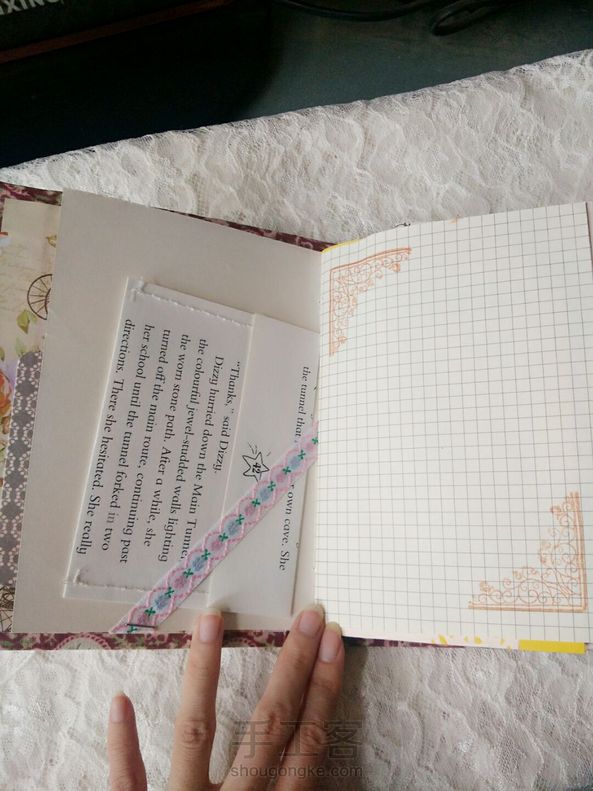 XING
the tunnel that
own cave. She
42
"Thanks," said Dizzy.
Dizzy hurried down the Main Tunne
the colourful jewel-studded walls lighting
the worn stone path. After a while, she
turned off the main route, continuing past
her school until the tunnel forked in two
directions. There she hesitated. She really
手工客
shougongke.com